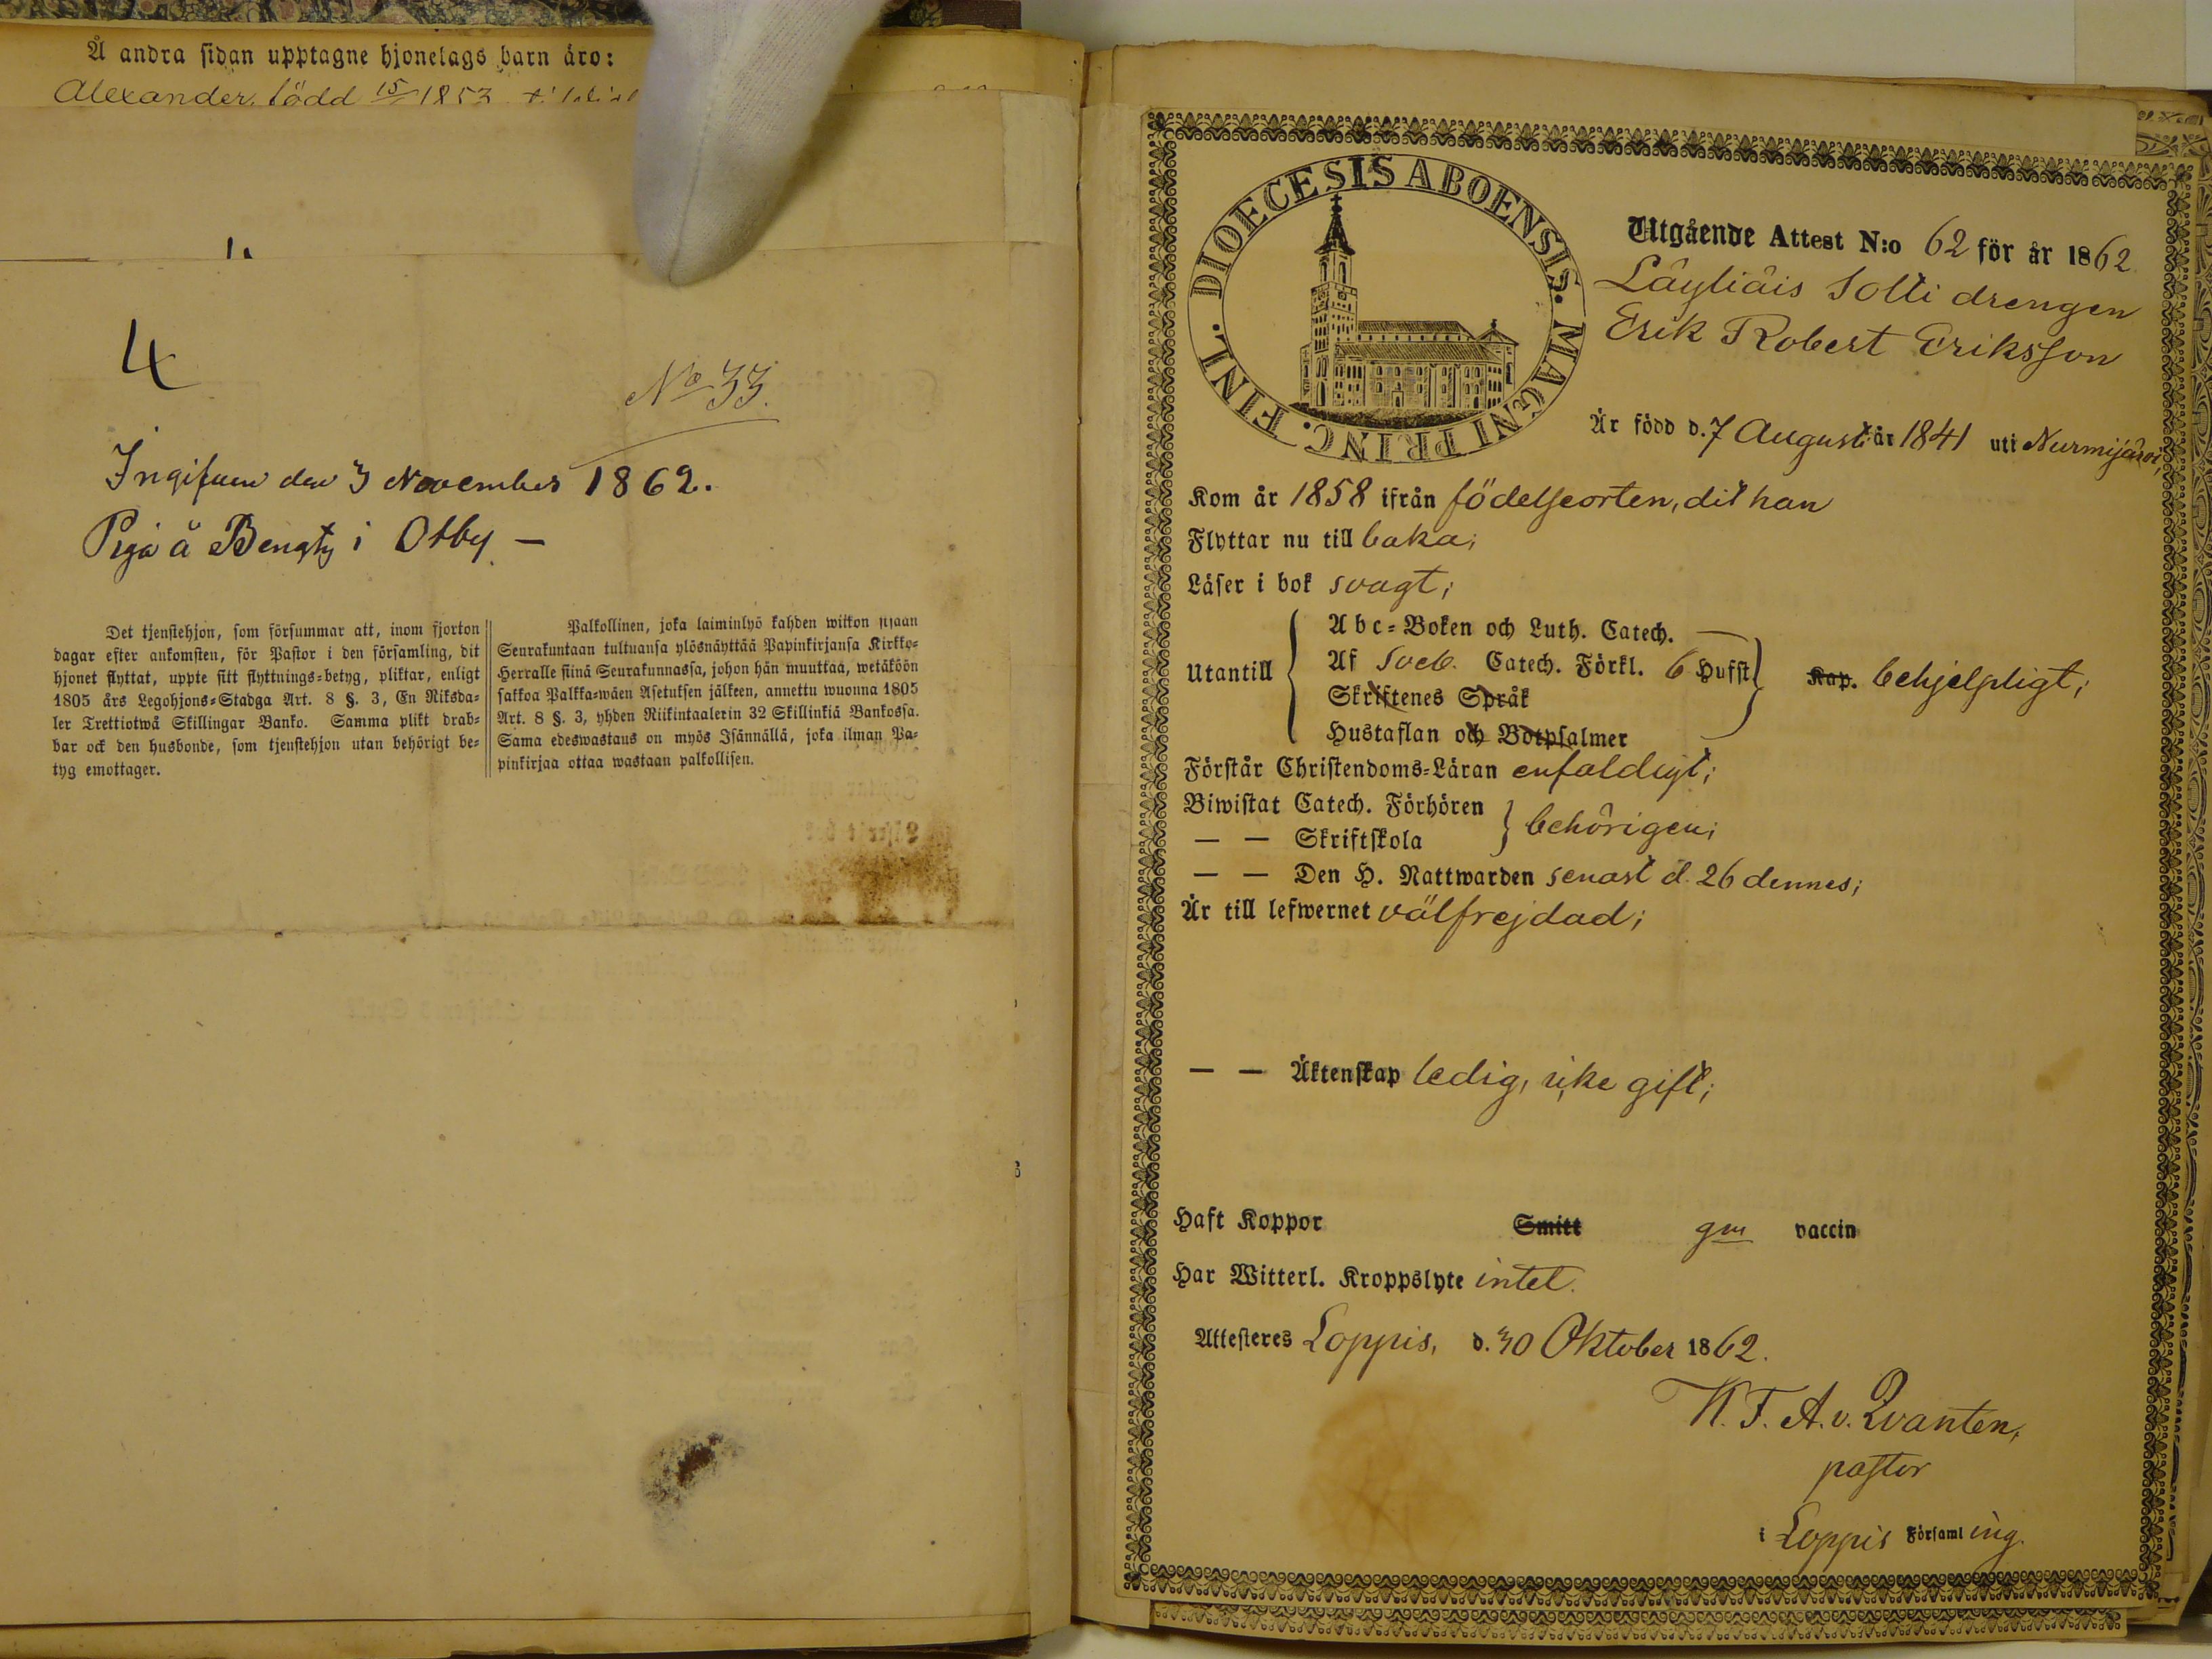 Å andra sidan upptagne hjonelags barn äro:
Alexander, född 15/ 1853
4
No 33.
Ingifven den 3 November 1862.
Piga å Bengts i Otby —
Det tjenstehjon, som försummar att, inom fjorton
dagar efter ankomsten, för Pastor i den församling, dit
hjonet flyttat, uppte sitt flyttnings-betyg, pliktar, enligt
1805 års Legohjons-Stadga Art. 8 §. 3, En Riksda-
ler Trettiotwå Skillingar Banko. Samma plikt drab-
bar ock den husbonde, som tjenstehjon utan behörigt be-
tyg emottager.
Palkollinen, joka laiminlyö kahden wiikon sisään
Seurakuntaan tultuansa ylösnäyttää Papinkirjansa Kirkko-
Herralle siinä Seurakunnassa, johon hän muuttaa, wetäköön
sakkoa Palkka-wäen Asetuksen jälkeen, annettu wuonna 1805
Art. 8 §. 3, yhden Riikintaalerin 32 Skillinkiä Bankossa.
Sama edeswastaus on myös Isännällä, joka ilman Pa-
pinkirjaa ottaa wastaan palkollisen.
DIOECESIS ABOENSIS. MAGNI PRINC. FINL.
Utgående Attest N:o 62 för år 1862.
Läyliäis Solti drengen
Erik Robert Eriksson
Är född d. 7 Augusti år 1841 uti Nurmijärvi,
Kom år 1858 ifrån födelseorten, dit han
Flyttar nu till baka;
Läser i bok svagt;
Utantill
Abc-Boken och Luth. Catech.
Af Sveb. Catech. Förkl. 6 Hufst
Skriftenes Språk
Hustaflan och Botpsalmer
Kap. behjelpligt;
Förstår Christendoms-Läran enfaldigt;
Biwistat Catech. Förhören
— — Skriftskola
behörigen;
— — Den H. Nattwarden senast d. 26 dennes;
Är till lefwernet välfrejdad;
— — Äktenskap ledig, icke gift;
Haft Koppor Smitt gm vaccin
Har Witterl. Kroppslyte intet.
Attesteres Loppis, d. 30 Oktober 1862.
K. F. A. v. Qvanten,
pastor
i Loppis Församling.